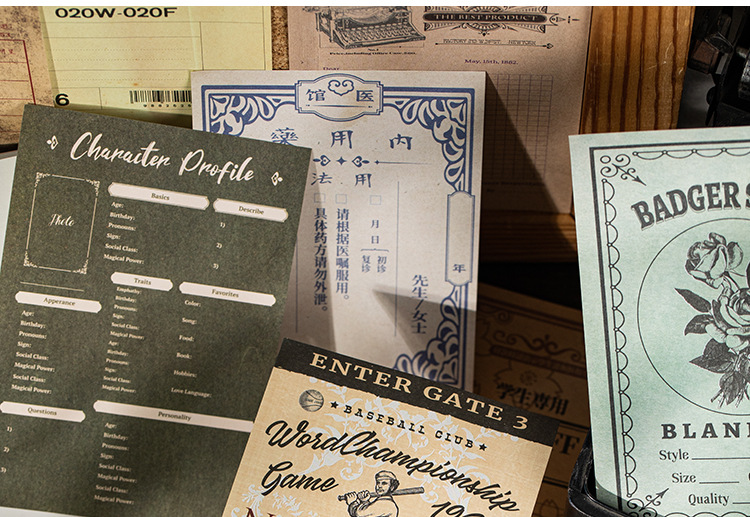 020W-020F
6
THE BEST PRODUCT
No.1
Price, including Office Case, $100.
FACTORY TO W.25ST., NEWYORK
May, 15th, 1882.
Dear:
医馆
内用藥
用法
月 日
初诊
复诊
请根据医嘱服用。
具体药方请勿外泄。
年
先生/女士
Character Profile
Photo
Basics
Age:
Birthday:
Pronouns:
Sign:
Social Class:
Magical Power:
Describe
1)
2)
3)
Traits
Empathy:
Birthday:
Pronouns:
Sign:
Social Class:
Magical Power:
Age:
Birthday:
Pronouns:
Sign:
Social Class:
Magical Power:
Favorites
Color:
Song:
Food:
Book:
Hobbies:
Love Language:
Apperance
Age:
Birthday:
Pronouns:
Sign:
Social Class:
Magical Power:
Age:
Birthday:
Pronouns:
Sign:
Social Class:
Magical Power:
Questions
1)
2)
3)
Personality
Age:
Birthday:
Pronouns:
Sign:
Social Class:
Magical Power:
ENTER GATE 3
BASFBALL CLUB
WordChampionship
Game
学生専用
BADGER S
BLAN
Style
Size
Quality